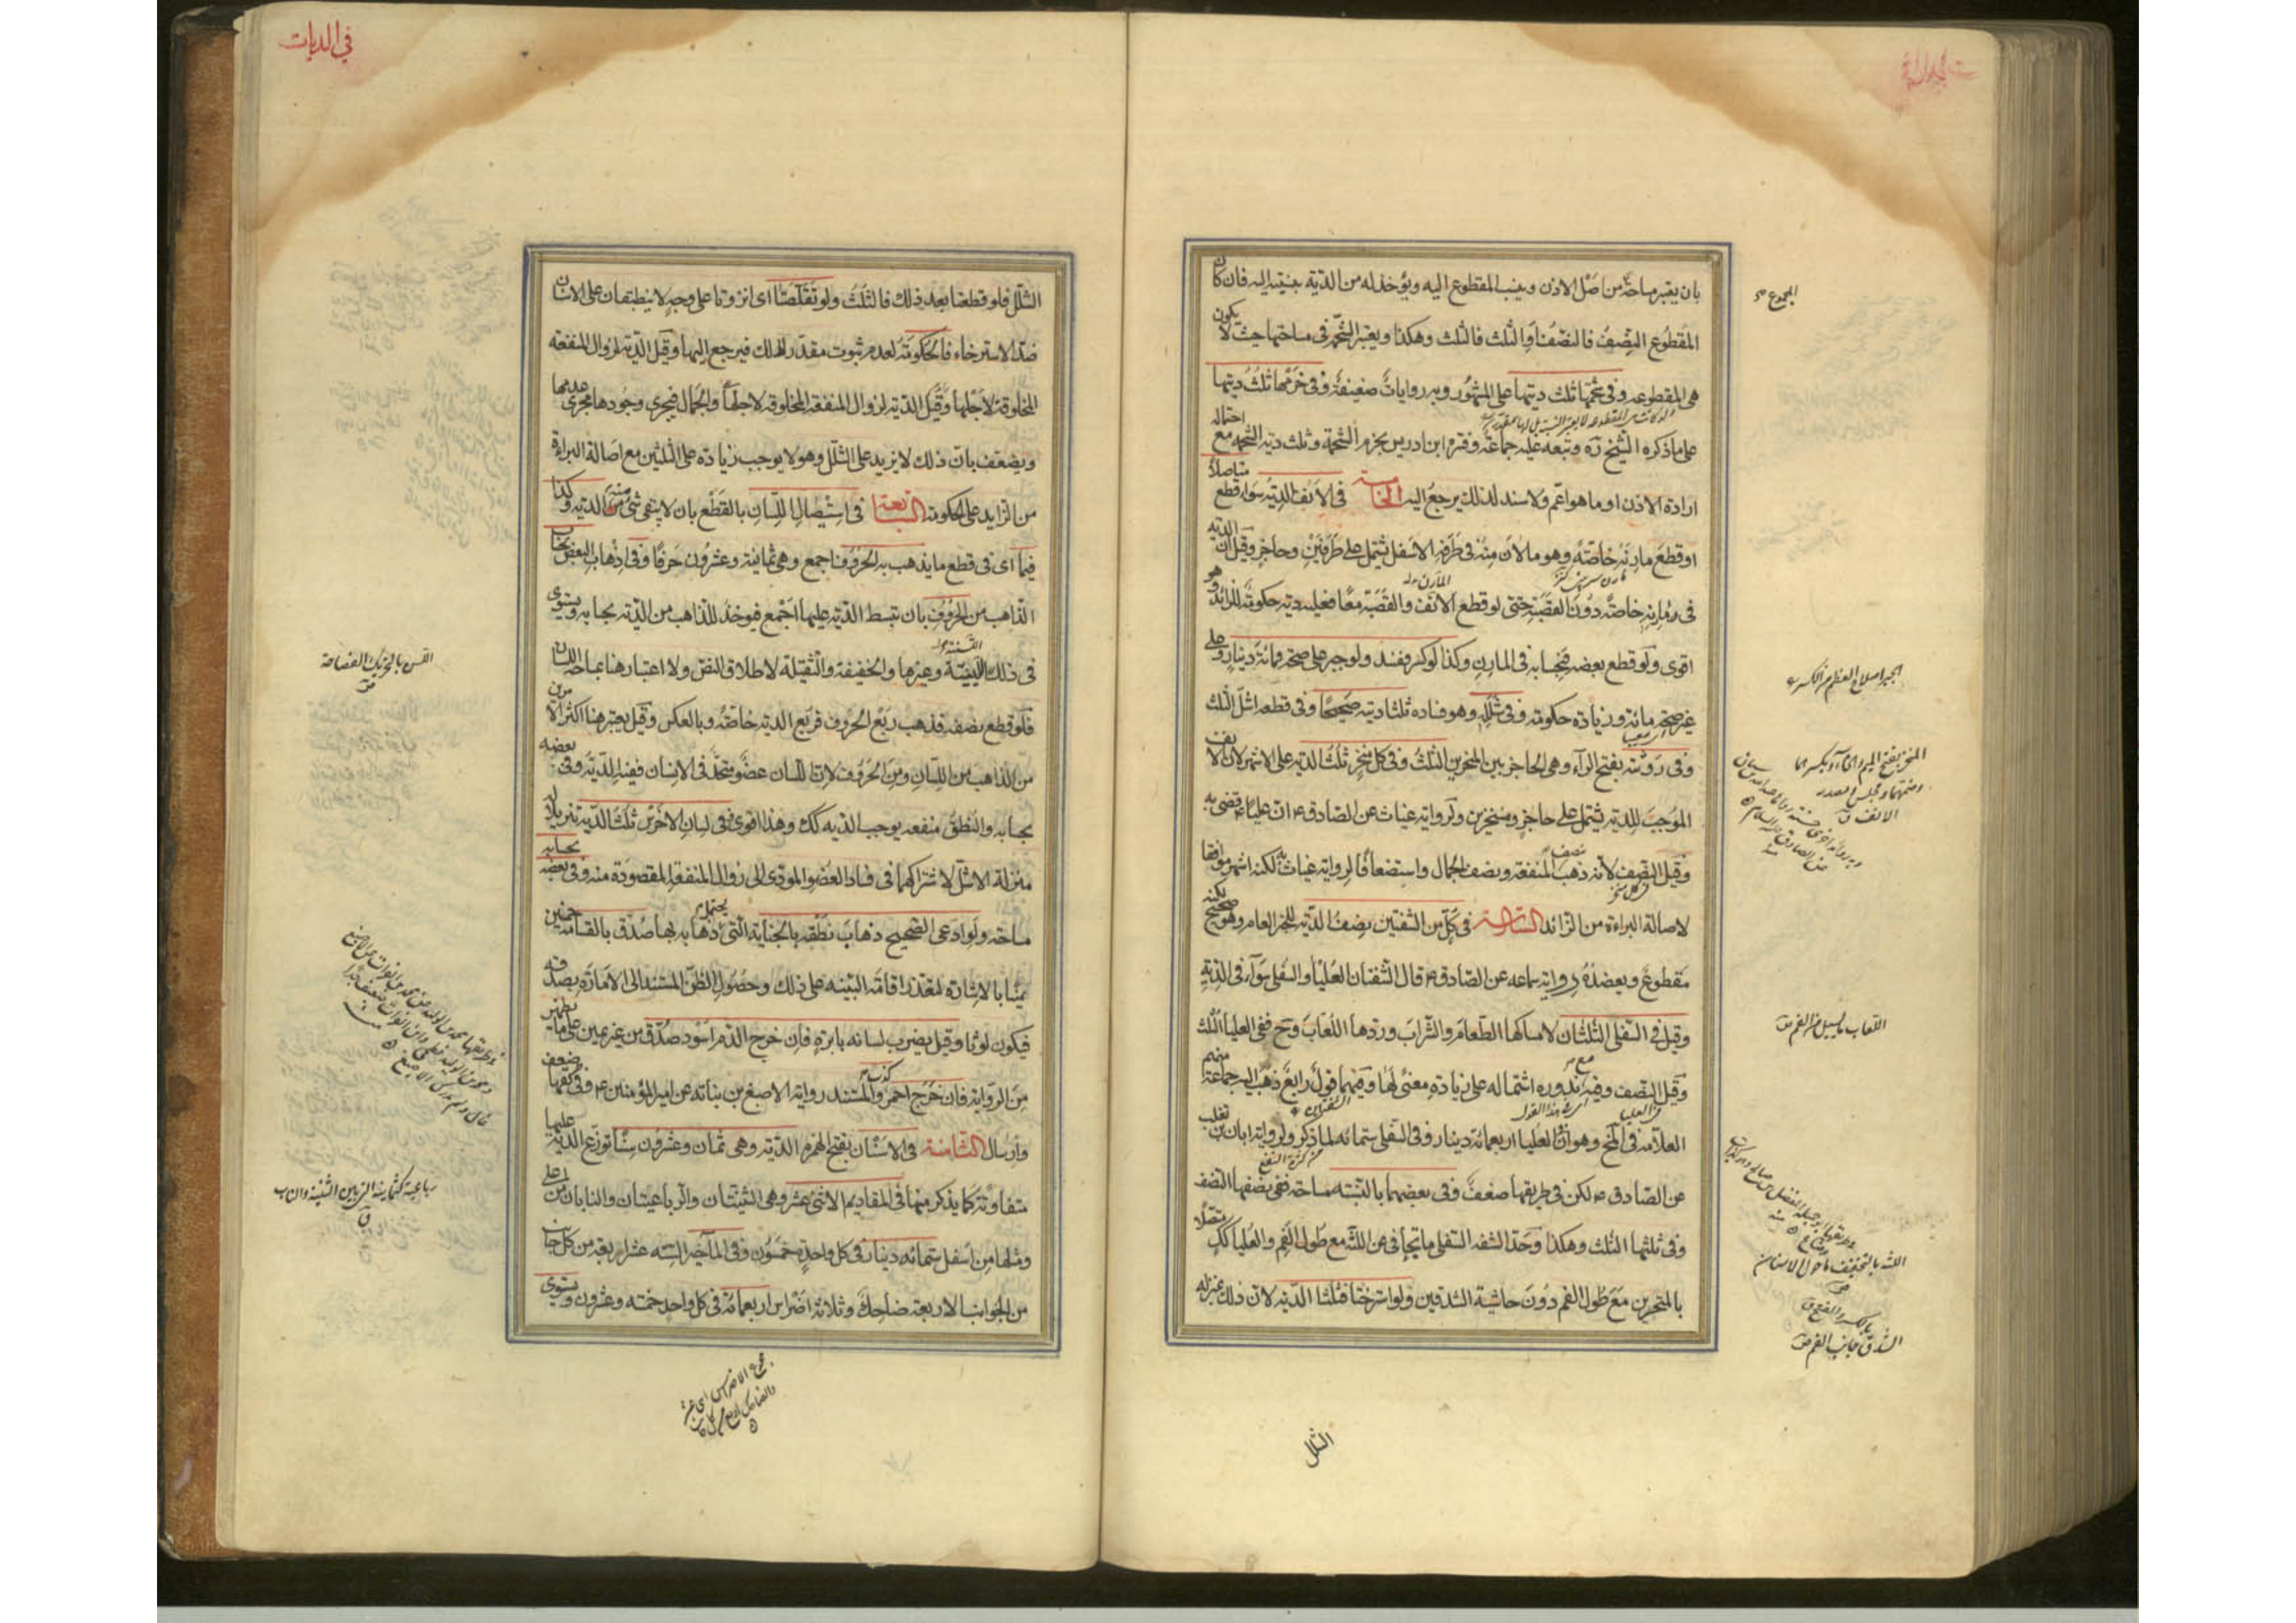 بان يعتبر مساحة من اصل الاذن وينسب المقطوع اليه ويؤخذ له من الدية بنسبته اليه فان كان
المقطوع النصف فالنصف او الثلث فالثلث وهكذا ويعتبر الشحمة في مساحتها حيث لا يكون
هي المقطوعة وفي شحمتها ثلث ديتها على المشهور وبه روايات ضعيفة وفي خرمها ثلث ديتها
على ما ذكره الشيخ ره وتبعه عليه جماعة وفسره ابن ادريس بخرم الشحمة وثلث دية الشحمة مع احتماله
ارادة الاذن او ما هو اعم ولا سند لذلك يرجع اليه الخامسة في الانف الدية سواء قطع مستاصلا
او قطع مارنه خاصة وهو ما لان منه في طرفه الاسفل يشتمل على طرفين وحاجز وقيل ان الدية
في مارنه خاصة دون القصبة حتى لو قطع الانف والقصبة معا فعليه دية وحكومة للزائد وهو
اقوى ولو قطع بعضه فبحسابه في المارن وكذا لو كسر ففسد ولو جبر على صحة فمائة دينار وعلى
غير صحة مائة وزيادة حكومة وفي شلله وهو فساده ثلثا ديته صحيحا وفي قطعه اشل الثلث
وفي روثته بفتح الراء وهي الحاجز بين المنخرين الثلث وفي كل منخر ثلث الدية على الاشهر لان الانف
الموجب للدية يشتمل على حاجز ومنخرين ولرواية غياث عن الصادق ع ان عليا ع قضى به
وقيل النصف لانه ذهب نصف المنفعة ونصف الجمال واستضعافا لرواية غياث به لكنه اشهر موافقا
لاصالة البراءة من الزائد السادسة في كل من الشفتين نصف الدية للخبر العام وهو صحيح لكنه
مقطوع ويعضده رواية سماعه عن الصادق ع قال الشفتان العليا والسفلى سواء في الدية
وقيل في السفلى الثلثان لامساكها الطعام والشراب وردها اللعاب وح ففي العليا الثلث
وقيل النصف وفيه مع ندوره اشتماله على زيادة لا معنى لها وفيهما قول رابع ذهب اليه جماعة منهم
العلامة في المخ وهو ان في العليا اربعمائة دينار وفي السفلى ستمائة لما ذكر ولرواية ابان بن تغلب
عن الصادق ع لكن في طريقها ضعف وفي بعضهما بالنسبة مساحة ففي نصفها النصف
وفي ثلثها الثلث وهكذا وحد الشفه السفلى ما تجافى عن اللثة مع طول الفم والعليا كك متصلا
بالمنخرين مع طول الفم دون حاشية الشدقين ولو استرختا فثلثا الدية لان ذلك بمنزلة
الشلل
الجبر اصلاح العظم من الكسر
اللعاب ما يسيل من الفم ق
اللثه بالتخفيف ما حول الاسنان
الشدق جانب الفم ق
في الديات
الشلل فلو قطعتا بعد ذلك فالثلث ولو تقلصتا اى انزوتا على وجه لا ينطبقان على الاسنان
ضد الاسترخاء فالحكومة لعدم ثبوت مقدر لذلك فيرجع اليها وقيل الدية لزوال المنفعة
المخلوقة لاجلها وقيل الدية لزوال المنفعة المخلوقة لاجلها والجمال فيجري وجودها مجرى عدمها
ويضعف بان ذلك لا يزيد على الشلل وهو لا يوجب زيادة على الثلثين مع اصالة البراءة
من الزايد على الحكومة السابعة في استيصال اللسان بالقطع بان لا يبقى شئ منه الدية وكذا
فيما اى في قطع ما يذهب به الحروف اجمع وهي ثمانية وعشرون حرفا وفي اذهاب البعض بحساب
الذاهب من الحروف بان تبسط الدية عليها اجمع فيوخذ للذاهب من الدية بحسابه ويستوى
في ذلك اللسنية وغيرها والخفيفة والثقيلة لاطلاق النص ولا اعتبار هنا بمساحة اللسان
فلو قطع نصفه فذهب ربع الحروف فربع الدية خاصة وبالعكس وقيل يعتبر هنا اكثر الامرين
من الذاهب من اللسان ومن الحروف لان اللسان عضو متحد في الانسان ففيه الدية وفي بعضه
بحسابه والنطق منفعة يوجب الدية كك وهذا اقوى وفي لسان الاخرس ثلث الدية تنزيلا له
منزلة الاشل لاشتراكهما في فساد العضو المودى الى زوال المنفعة المقصودة منه وفي بعضه بحسابه
مساحة ولو ادعى الصحيح ذهاب نطقه بالجناية التي يحتمل ذهابه بها صدق بالقسامة خمسين
يمينا بالاشارة لتعذر اقامة البينة على ذلك وحصول الظن المستند الى الامارة بصدقه
فيكون لوثا وقيل يضرب لسانه بابرة فان خرج الدم اسود صدق من غير يمين على ما يظهر
من الرواية فان خرج احمر كذب والمستند رواية الاصبغ بن نباته عن امير المؤمنين ع وفي طريقها ضعف
وارسال الثامنة في الاسنان بفتح الهمزة الدية وهي ثمان وعشرون سنا توزع الدية عليها
متفاوتة كما يذكر منها في المقاديم الاثنى عشر وهي الثنيتان والرباعيتان والنابان من اعلى
ومثلها من اسفل ستمائة دينار في كل واحدة خمسون وفي المآخير الستة عشر اربعة من كل جانب
من الجوانب الاربعة ضاحك وثلاثة اضراس اربعمائة في كل واحد خمسة وعشرون ويستوى
اللسن بالتحريك الفصاحة